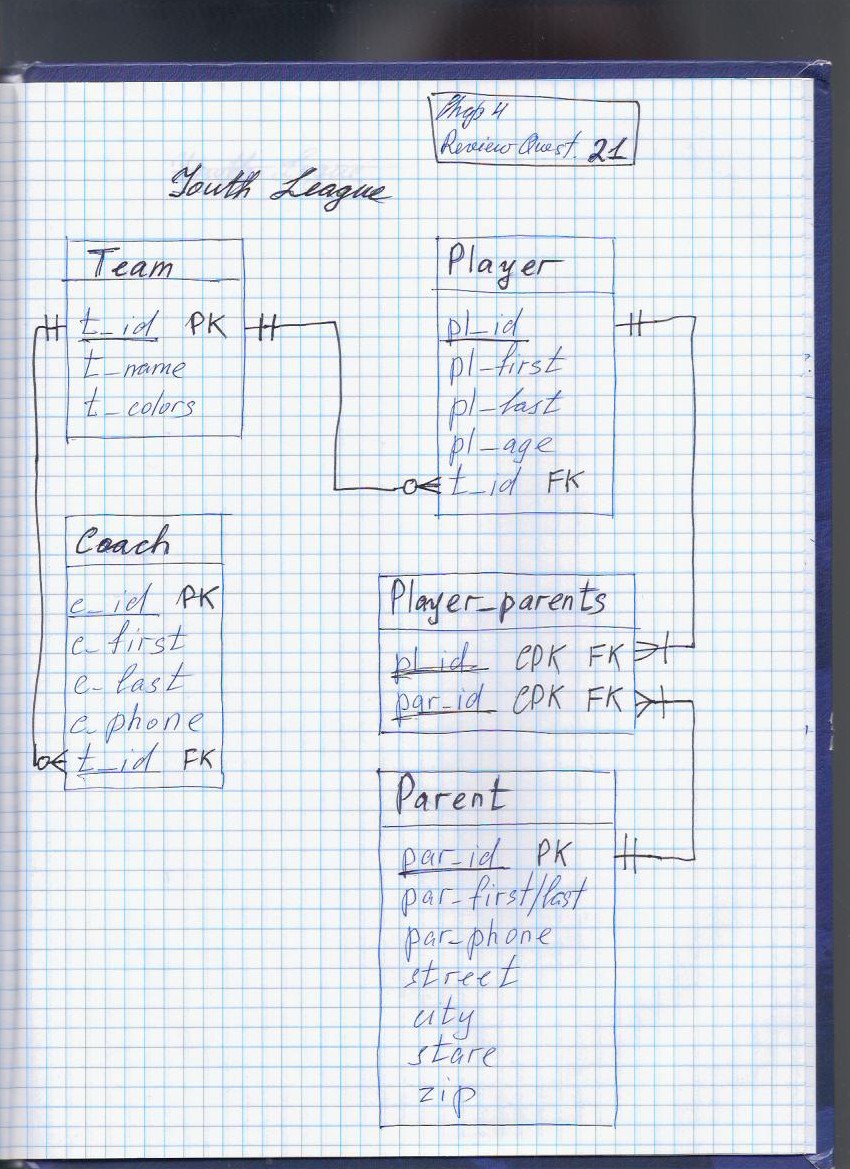 Chap 4
Review Quest. 21
Youth League
Team
t_id PK
t_name
t_colors
Player
pl_id
pl_first
pl_last
pl_age
t_id FK
Coach
c_id PK
c_first
c_last
c_phone
t_id FK
Player_parents
pl_id CPK FK
par_id CPK FK
Parent
par_id PK
par_first/last
par_phone
street
city
stare
zip